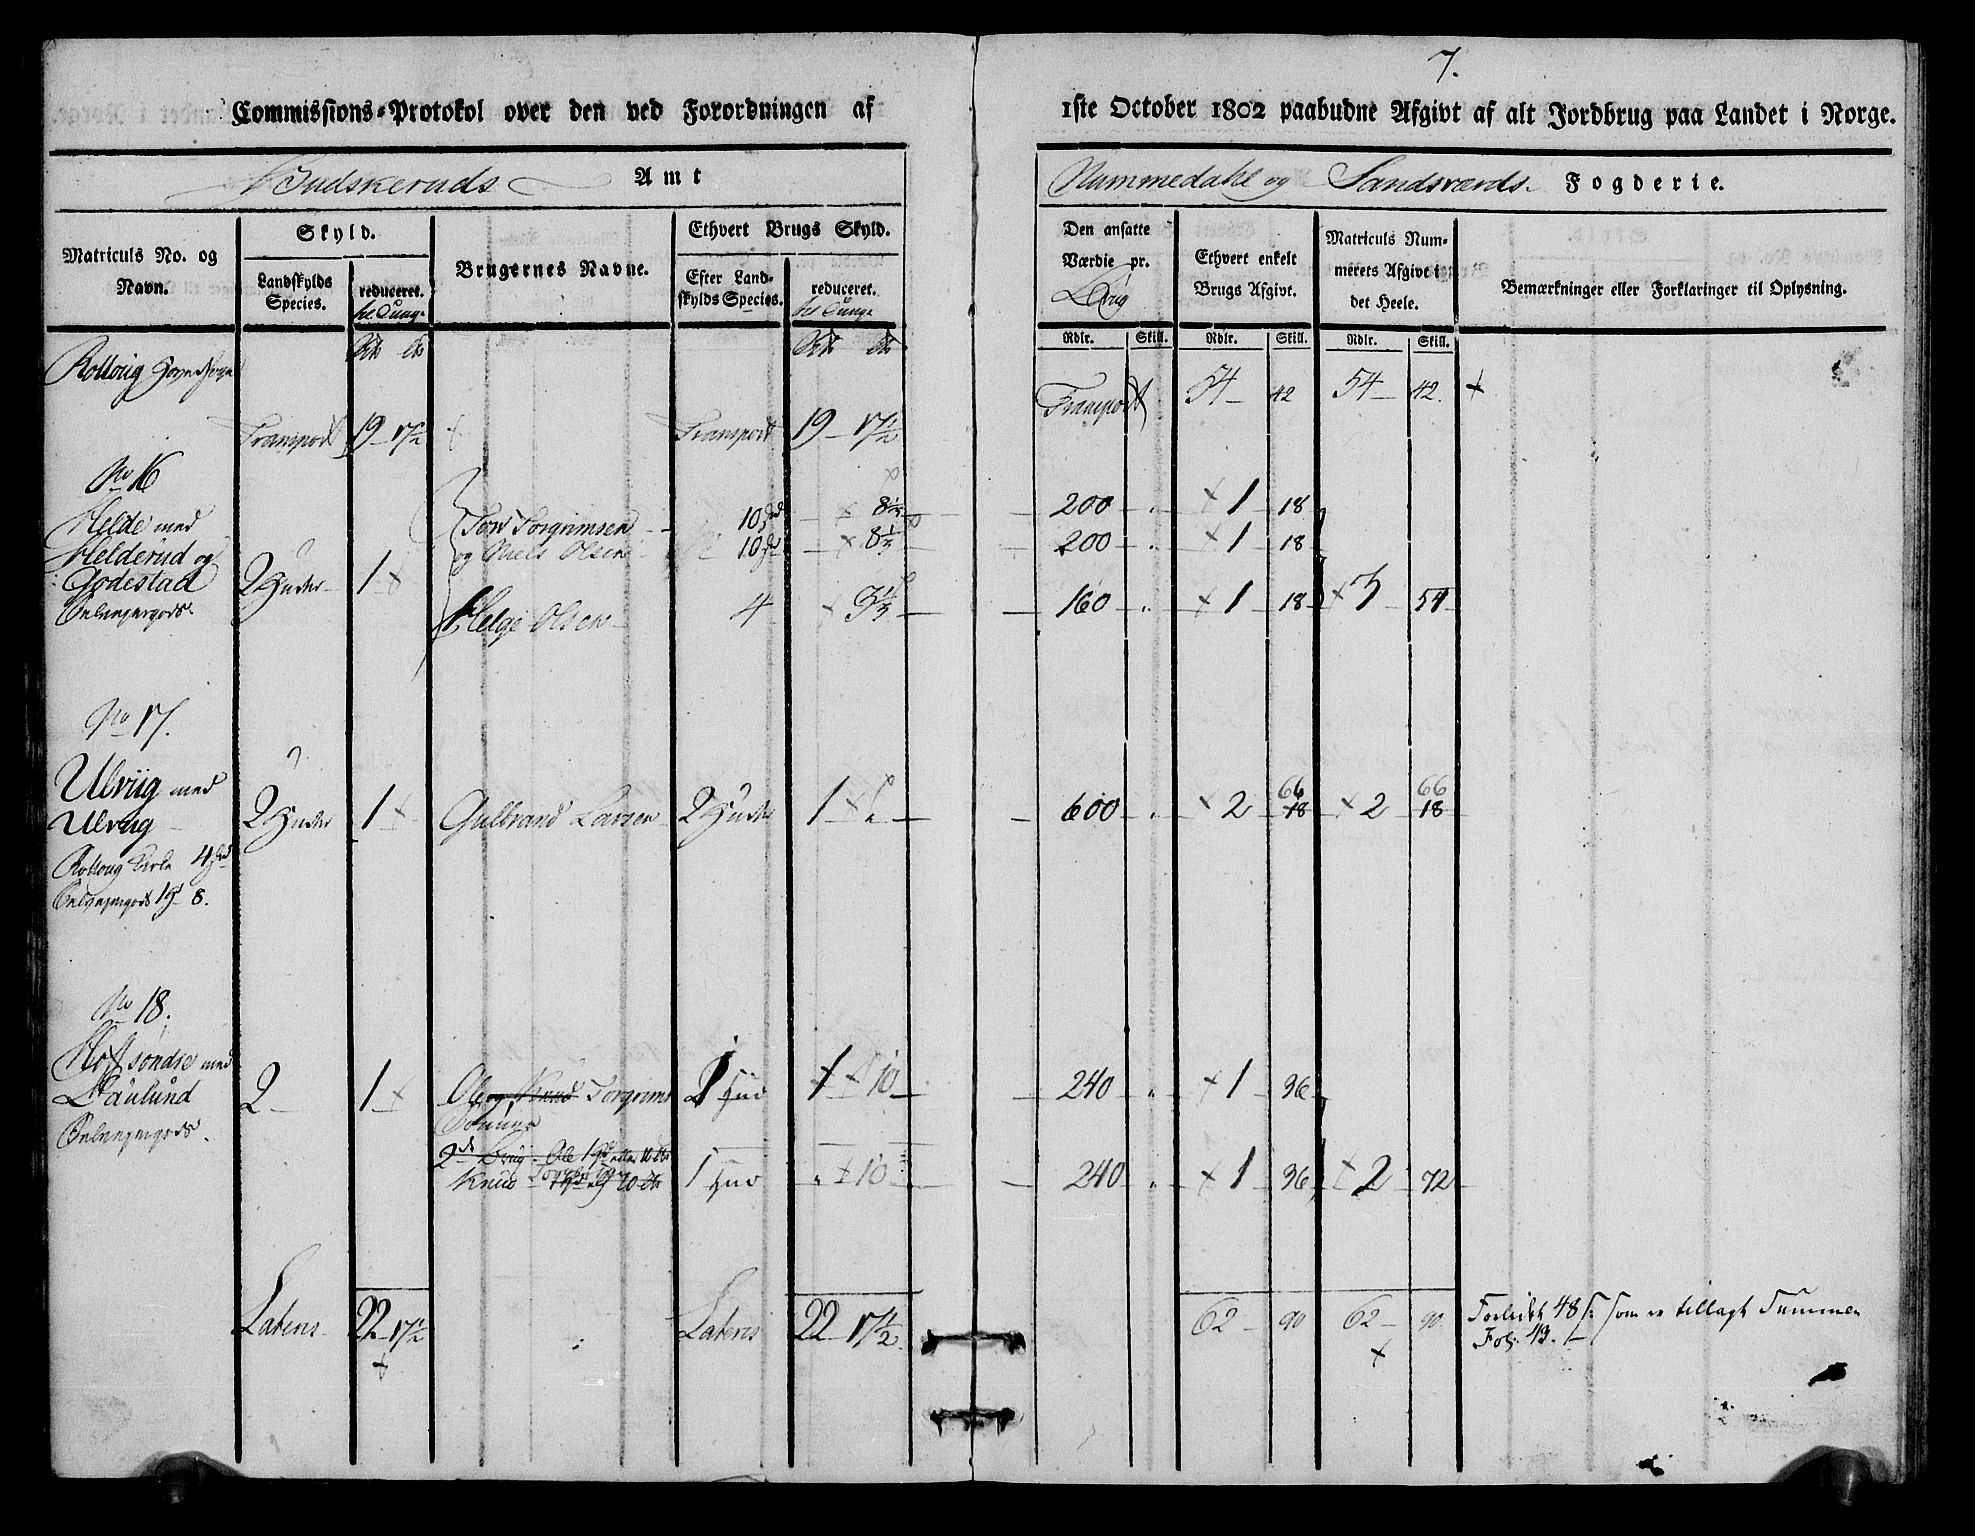 7.
Commissions-Protokol over den ved Forordningen af 1ste October 1802 paabudne Afgivt af alt Jordbrug paa Landet i Norge.
Budskeruds Amt
Nummedahl og Sandsværds Fogderie.
Matriculs No. og Navn.
Skyld.
Landskylds Species.
reduceret.
Brugernes Navne.
Ethvert Brugs Skyld.
Efter Landskylds Species.
reduceret.
Den ansatte Værdie pr. Brug
Ethvert enkelt Brugs Afgivt.
Matriculs Nummerets Afgivt i det Heele.
Bemærkninger eller Forklaringer til Oplysning.
Rdlr. Skill. Rdlr. Skill. Rdlr. Skill.
Rolloug
Transport 19 17½ Transport 19 17½ Transport 54 42 54 42.
No 16
Helde med
Helderud og
Godestad
2 Huder 1
Tov Torgrimsen 10 8⅓ 200 1 18
og Niels Olsen 10 8⅓ 200 1 18
Helge Olsen 4 3⅓ 160 1 18 3 54
No 17.
Ulvüg med
Ulvrug
2 Huder 1 Gulbrand Larsen 2 Huder 1 600 2 66 18 2 66 18
Rolloug Kirke 4
8.
No 18.
Hoff søndre med
Daulund
2 1 Ole og Knud Torgrims 1 Hud 1 10 240 1 36
Sønner
2de Brug Ole
Knud 1 Hud 10 240 1 36 2 72
Lateris 22 17½ Lateris 22 17½ 62 90 62 90
48 s: som er tillagt Summen
Fol: 43.